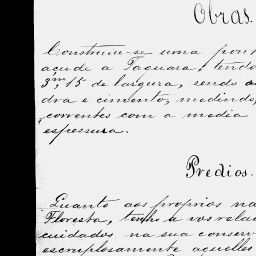 Obras.
Construiu-se uma pon
açude a Taquara, tendo
3,m15 de largura, sendo
dra e cimento, medindo,
correntes com a media
espessura.
Predios.
Quanto aos proprios na
Floresta, tenho a vos relat
cuidados na sua conserv
escruplosamente aquelles